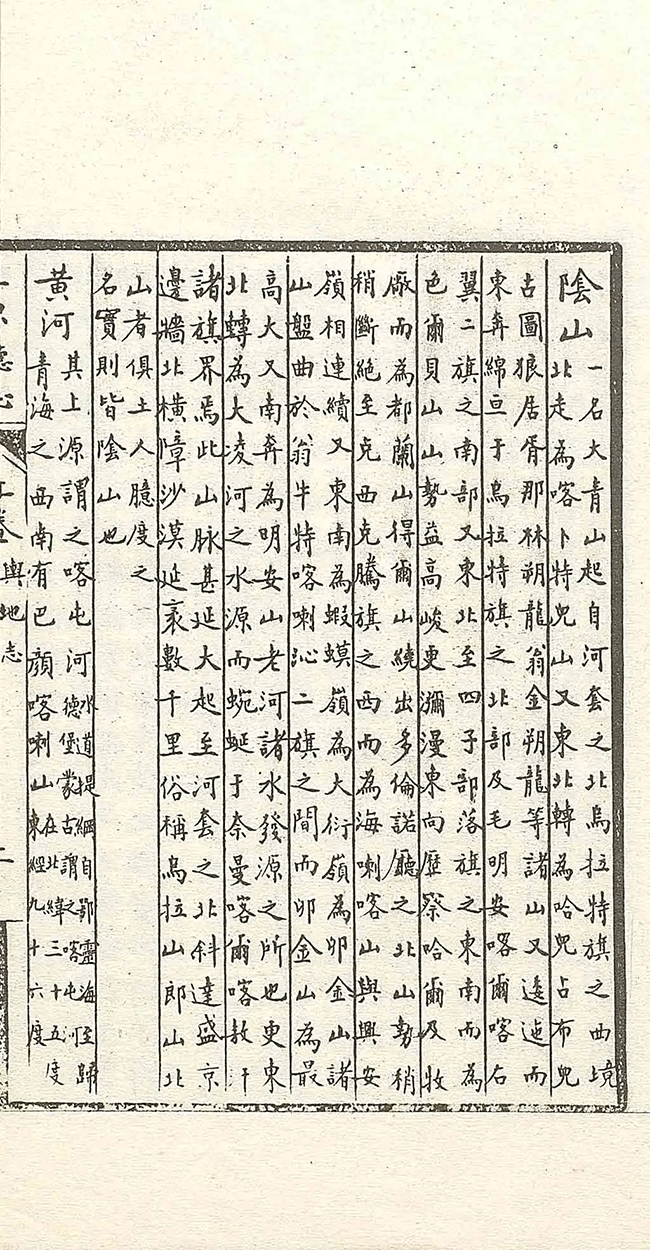 陰山
一名大青山起自河套之北烏拉特旗之西境
北走為喀卜特兒山又東北轉為哈兒占布兒
古圖狼居胥那林朔龍翁金朔龍等諸山又逶迤而
東奔綿亘于烏拉特旗之北部及毛明安喀爾喀右
翼二旗之南部又東北至四子部落旗之東南而為
色爾貝山山勢益高峻更瀰漫東向歷察哈爾及牧
廠而為都蘭山得爾山繞出多倫諾廳之北山勢稍
稍斷絕至克西克騰旗之西而為海喇喀山與興安
嶺相連續又東南為蝦蟆嶺為大衍嶺為卯金山諸
山盤曲於翁牛特喀喇沁二旗之間而卯金山為最
高大又南奔為明安山老河諸水發源之所也更東
北轉為大凌河之水源而蜿蜒于奈曼喀爾喀敖汗
諸旗界焉此山脉甚延大起至河套之北斜達盛京
邊牆北橫障沙漠延袤數千里俗稱烏拉山郎山北
山者俱土人臆度之
名實則皆陰山也
黃河
其上源謂之喀屯河
水道提綱自鄂靈海至歸
德堡蒙古謂之喀屯河
青海之西南有巴顏喀喇山
在北緯三十五度
東經九十六度
輿地志